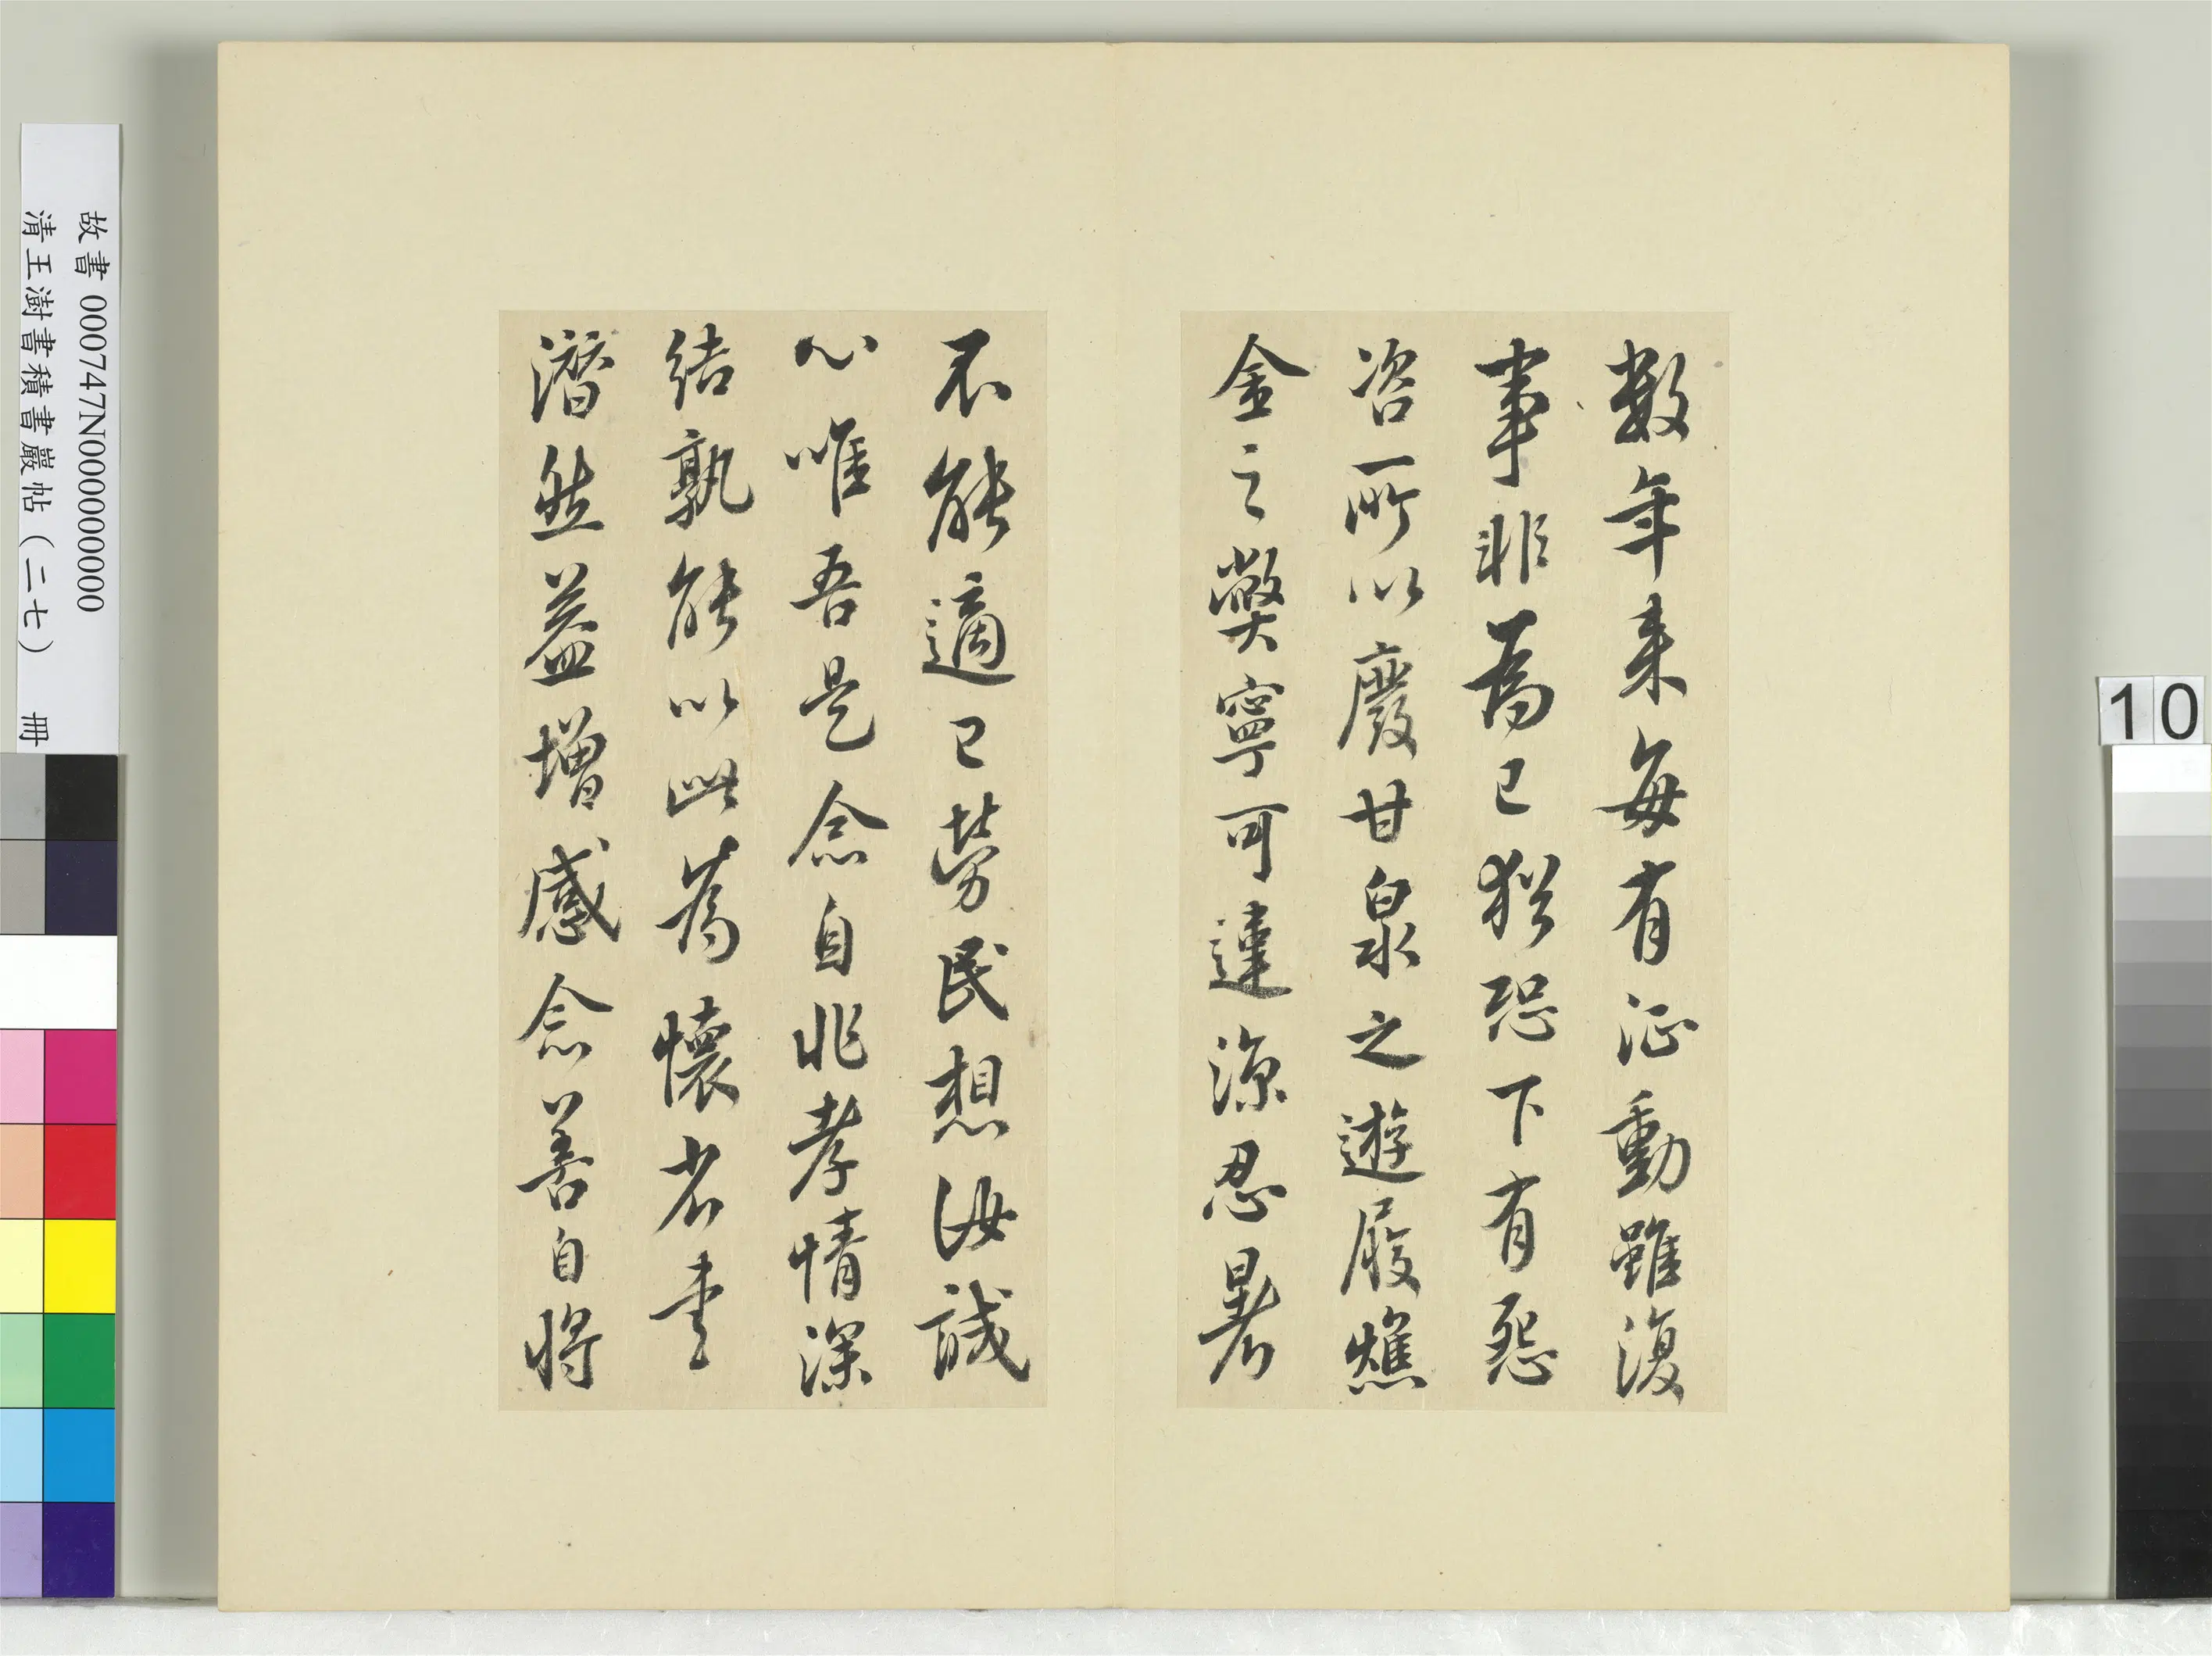 數年来每有征動雖復
事非為己猶恐下有怨
咨所以廢甘泉之遊履燋
金之弊寧可違涼忍暑
不能適己勞民想汝誠
心唯吾是念自非孝情深
結孰能以此為懷省書
潛然益增感念善自將
故書 000747N000000000
清王澍書積書巖帖(二七) 冊
10